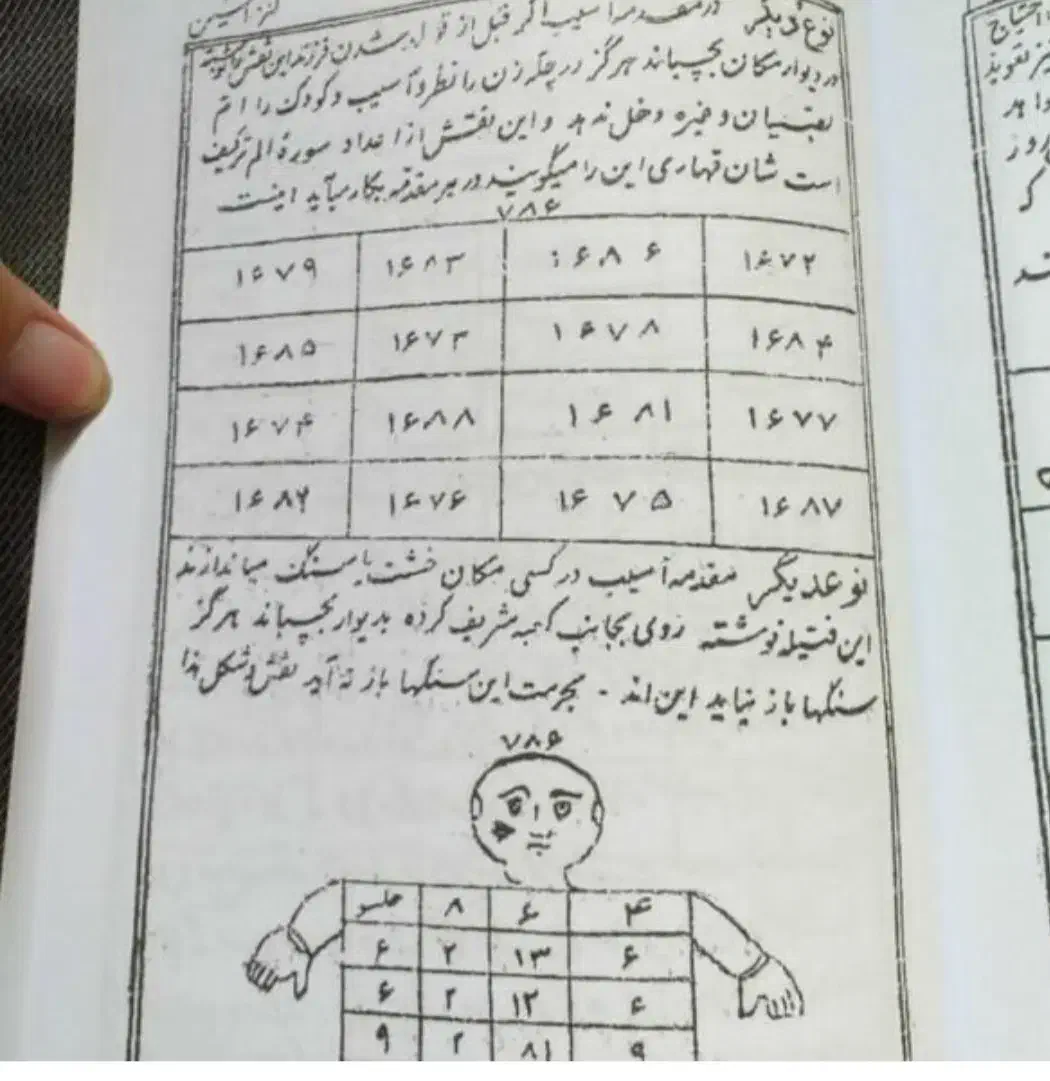 کنز الحسین
نوع دیگر در مقدمه آسیب اگر قبل از تولد شدن فرزند این نقش نوشته
در دیوار مکان بچسپاند هرگز در چله زن را نظره و آسیب و کودک را ام
صبیان وغیره دخل ندهد و این نقش از اعداد سورة الم ترکیف
است شان قهاری این را میگویند در هر مقدمه بکار میآید اینست
۷۸۶
۱۶۷۹ ۱۶۸۳ ۱۶۸۶ ۱۶۷۲
۱۶۸۵ ۱۶۷۳ ۱۶۷۸ ۱۶۸۴
۱۶۷۴ ۱۶۸۸ ۱۶۸۱ ۱۶۷۷
۱۶۸۲ ۱۶۷۶ ۱۶۷۵ ۱۶۸۷
نوعدیگر مقدمه آسیب در کسی مکان خشت یا سنگ میاندازند
این فتیله نوشته روی بجانب کعبه شریف کرده بدیوار بچسپاند هرگز
سنگها باز نیاید این اند - بحرمت این سنگها باز نه آید نقش و شکل هذا
۷۸۶
۸ ۶ ۴
۶ ۲ ۱۳ ۶
۶ ۲ ۱۲ ۶
۹ ۲ ۸۱ ۹
احتیاج
تعویذ
روز